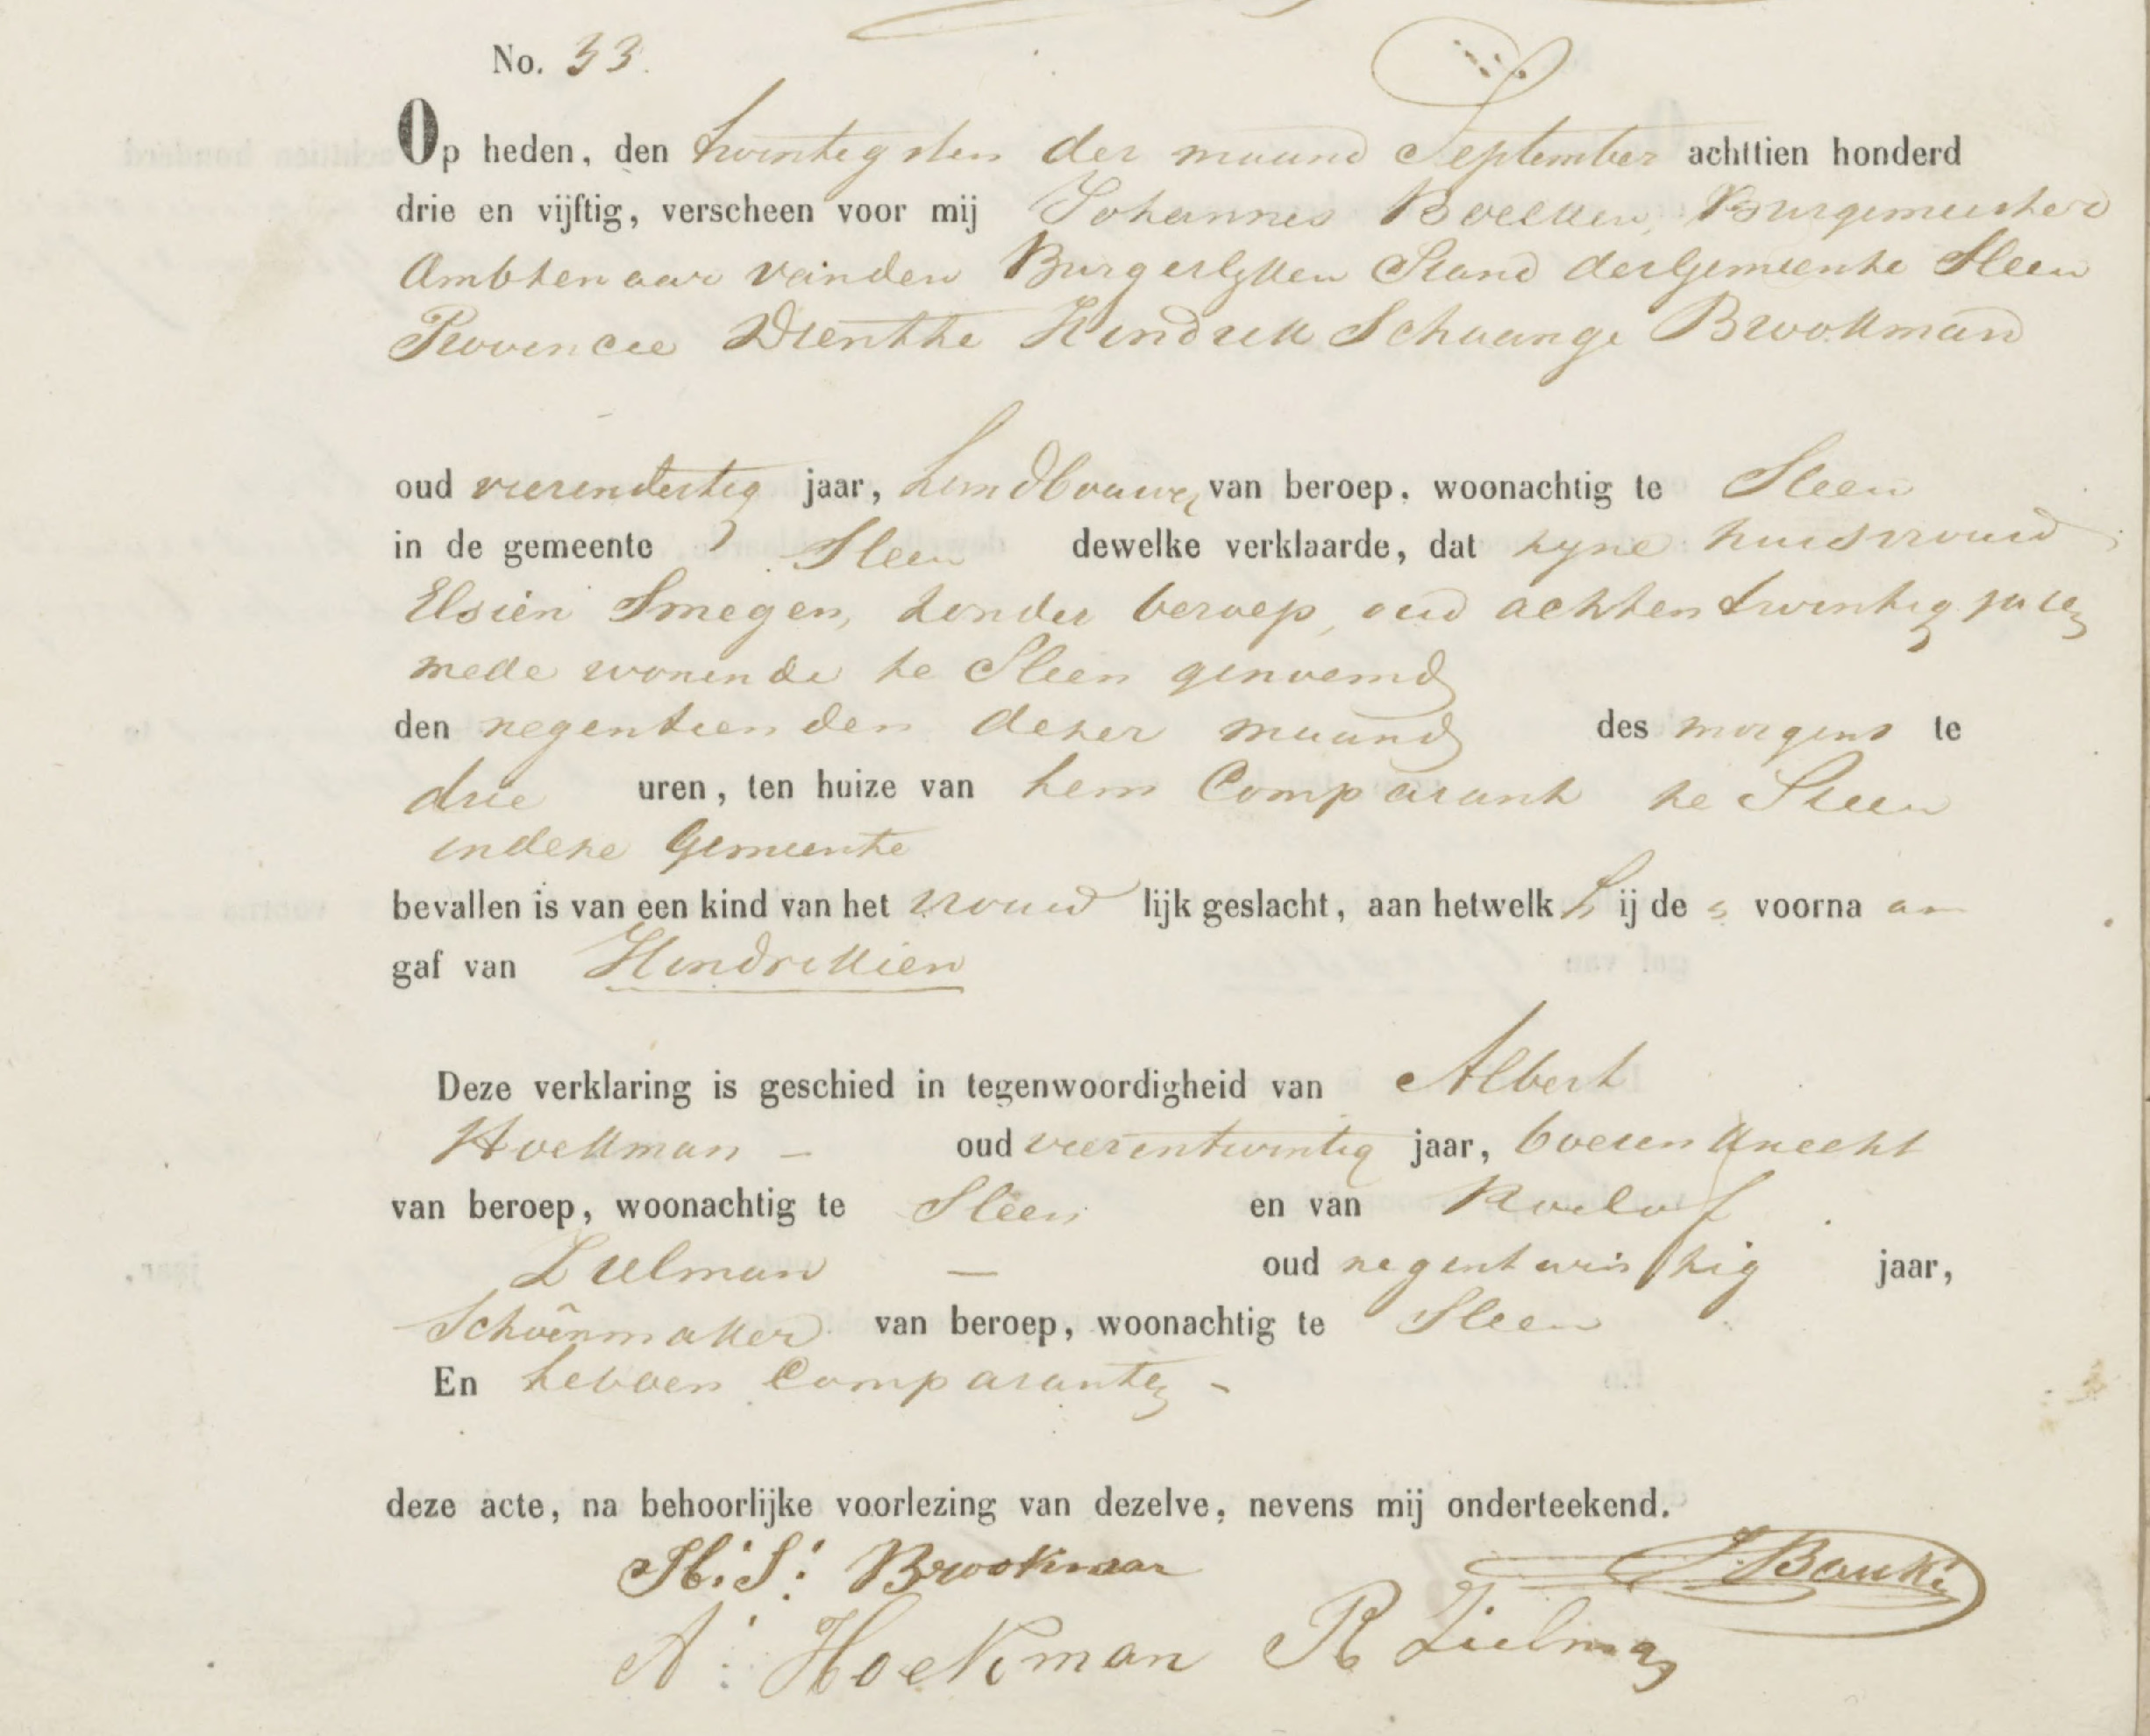 No. 33.
Op heden, den twintigsten der maand September achttien honderd
drie en vijftig, verscheen voor mij Johannes Boelken, Burgemeester
Ambtenaar van den Burgerlyken Stand der Gemeente Sleen
Provincie Drenthe Hendrik Schaange Brookman
oud vierendertig jaar, Landbouwer van beroep, woonachtig te Sleen
in de gemeente Sleen dewelke verklaarde, dat zyne huisvrouw
Elsien Smegen, zonder beroep, oud achtentwintig jaren
mede wonende te Sleen genoemd
den negentienden dezer maand des morgens te
drie uren, ten huize van hem Comparant te Sleen
in deze Gemeente
bevallen is van een kind van het vrouw lijk geslacht, aan hetwelk hij de n voorna am
gaf van Hendrikien
Deze verklaring is geschied in tegenwoordigheid van Albert
Hoekman - oud vierentwintig jaar, boerenknecht
van beroep, woonachtig te Sleen en van Roelof
Zielman — oud negentwintig jaar,
Schoenmaker van beroep, woonachtig te Sleen
En hebben Comparanten -
deze acte, na behoorlijke voorlezing van dezelve, nevens mij onderteekend.
H: S: Brookman
A: Hoekman R Zielman